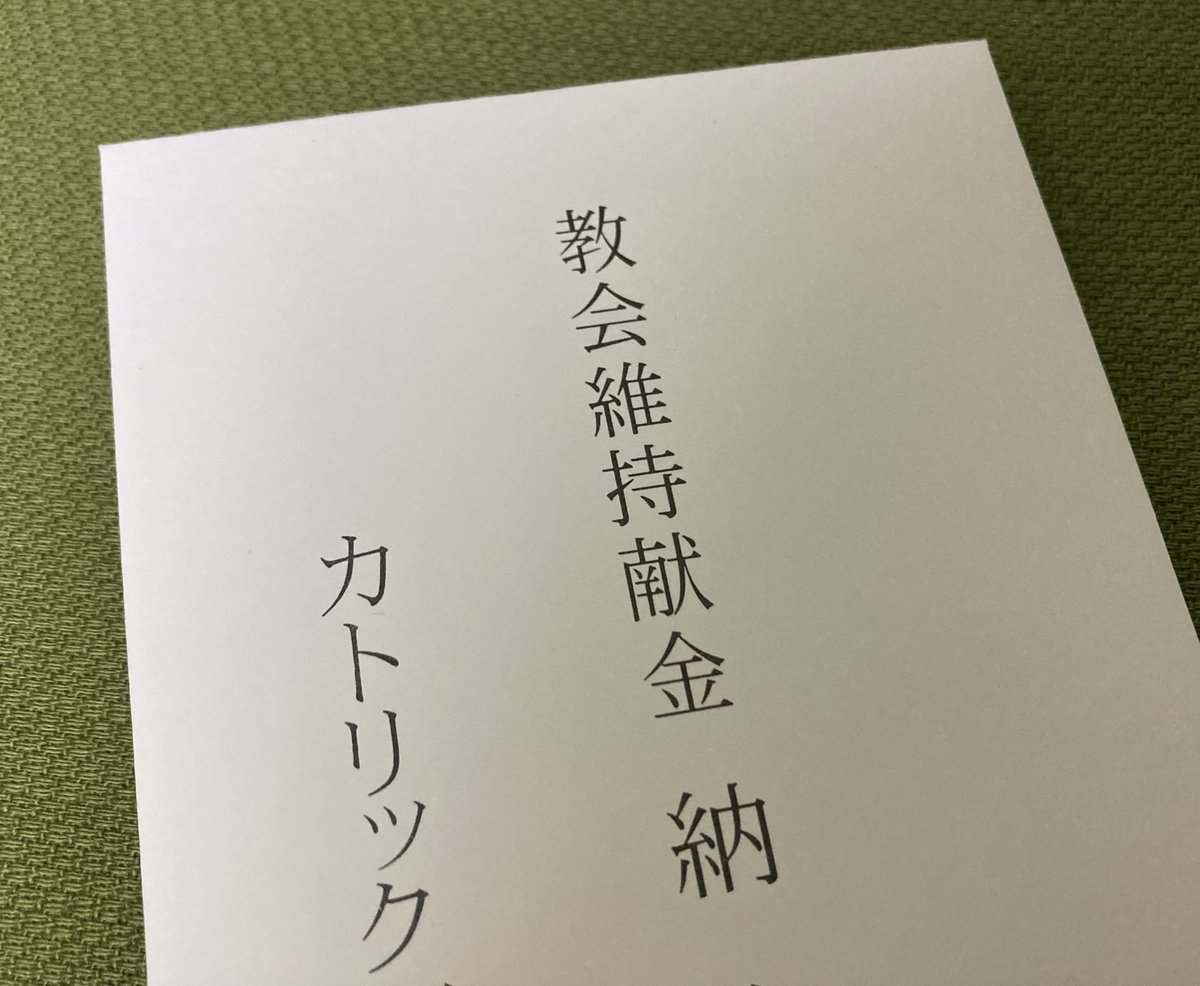 教会維持献金 納
カトリック